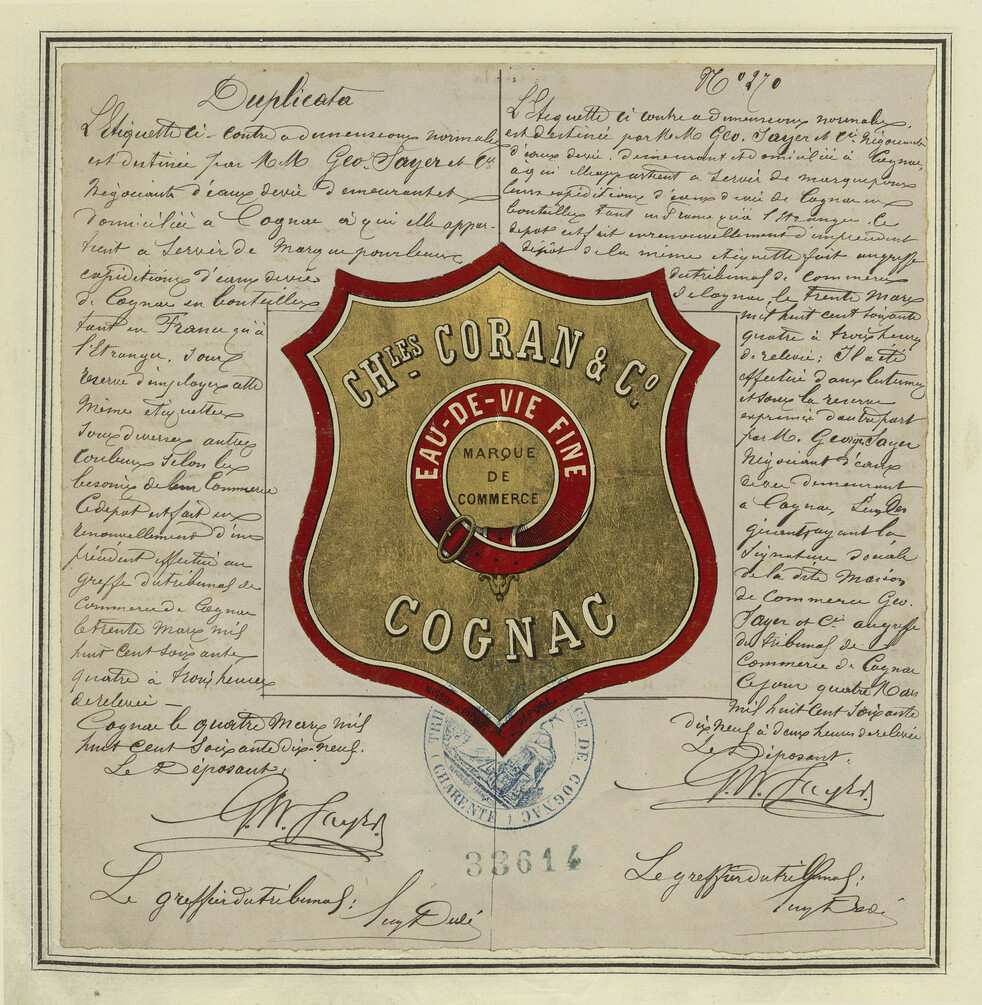 Duplicata
L'étiquette ci-contre a dimensions normales
est destinée par M M Geo. Sayer et Cie
Négociants d'eaux devie demeurant et
domiciliée à Cognac à qui elle appar-
tient a servir de Marque pour leurs
expéditions d'eaux devie
de Cognac en bouteilles
tant en France qu'à
l'Etranger, sous
réserve d'employer cette
même étiquette
sous diverses autres
couleurs selon les
besoins de leur Commerce
Ce dépot est fait en
renouvellement d'un
précédent effectué au
greffe du tribunal de
Commerce de Cognac
le trente Mars mil
huit cent soixante
quatre à trois heures
de relevée —
Cognac le quatre Mars mil
huit cent soixante dix-neuf.
Le Déposant,
G. W. Sayer
Le greffier du tribunal:
N° 270
L'Etiquette ci contre a dimensions normales,
est destinée par M M Geo. Sayer et Cie Négociants
d'eaux devie, demeurant et domiciliée à Cognac,
a qui elle appartient a servir de marque pour
leurs expéditions d'eaux devie de Cognac en
bouteilles tant en France qu'à l'Etranger. Ce
depot est fait en renouvellement d'un précédent
dépôt de la même étiquette fait au greffe
du tribunal de Commerce
de Cognac, le trente Mars
mil huit cent soixante
quatre à trois heures
de relevée; Il a été
effectué dans les termes
et sous la reserve
exprimée d'autre part
par M. Georges Sayer
Négociant d'eaux
devie demeurant
à Cognac, l'un des
gérants, ayant la
signature sociale
de la dite Maison
de Commerce Geo.
Sayer et Cie au greffe
du tribunal de
Commerce de Cognac
Ce jour quatre Mars
mil huit cent soixante
dix neuf à deux heures de relevée
Le Déposant.
G. W. Sayer
Le greffier du tribunal:
CHLES CORAN & Co.
EAU-DE-VIE FINE
MARQUE
DE
COMMERCE
COGNAC
DE COGNAC
(CHARENTE)
33614